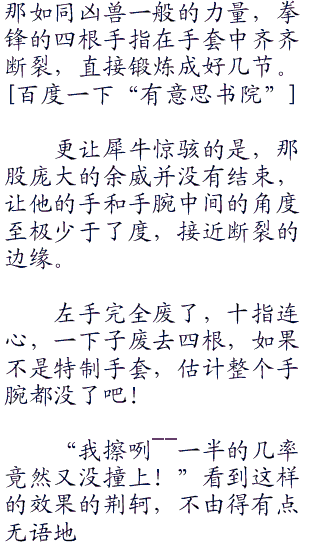 那如同凶兽一般的力量，拳
锋的四根手指在手套中齐齐
断裂，直接锻炼成好几节。
[百度一下“有意思书院”]
更让犀牛惊骇的是，那
股庞大的余威并没有结束，
让他的手和手腕中间的角度
至极少于了度，接近断裂的
边缘。
左手完全废了，十指连
心，一下子废去四根，如果
不是特制手套，估计整个手
腕都没了吧！
“我擦咧——一半的几率
竟然又没撞上！”看到这样
的效果的荆轲，不由得有点
无语地